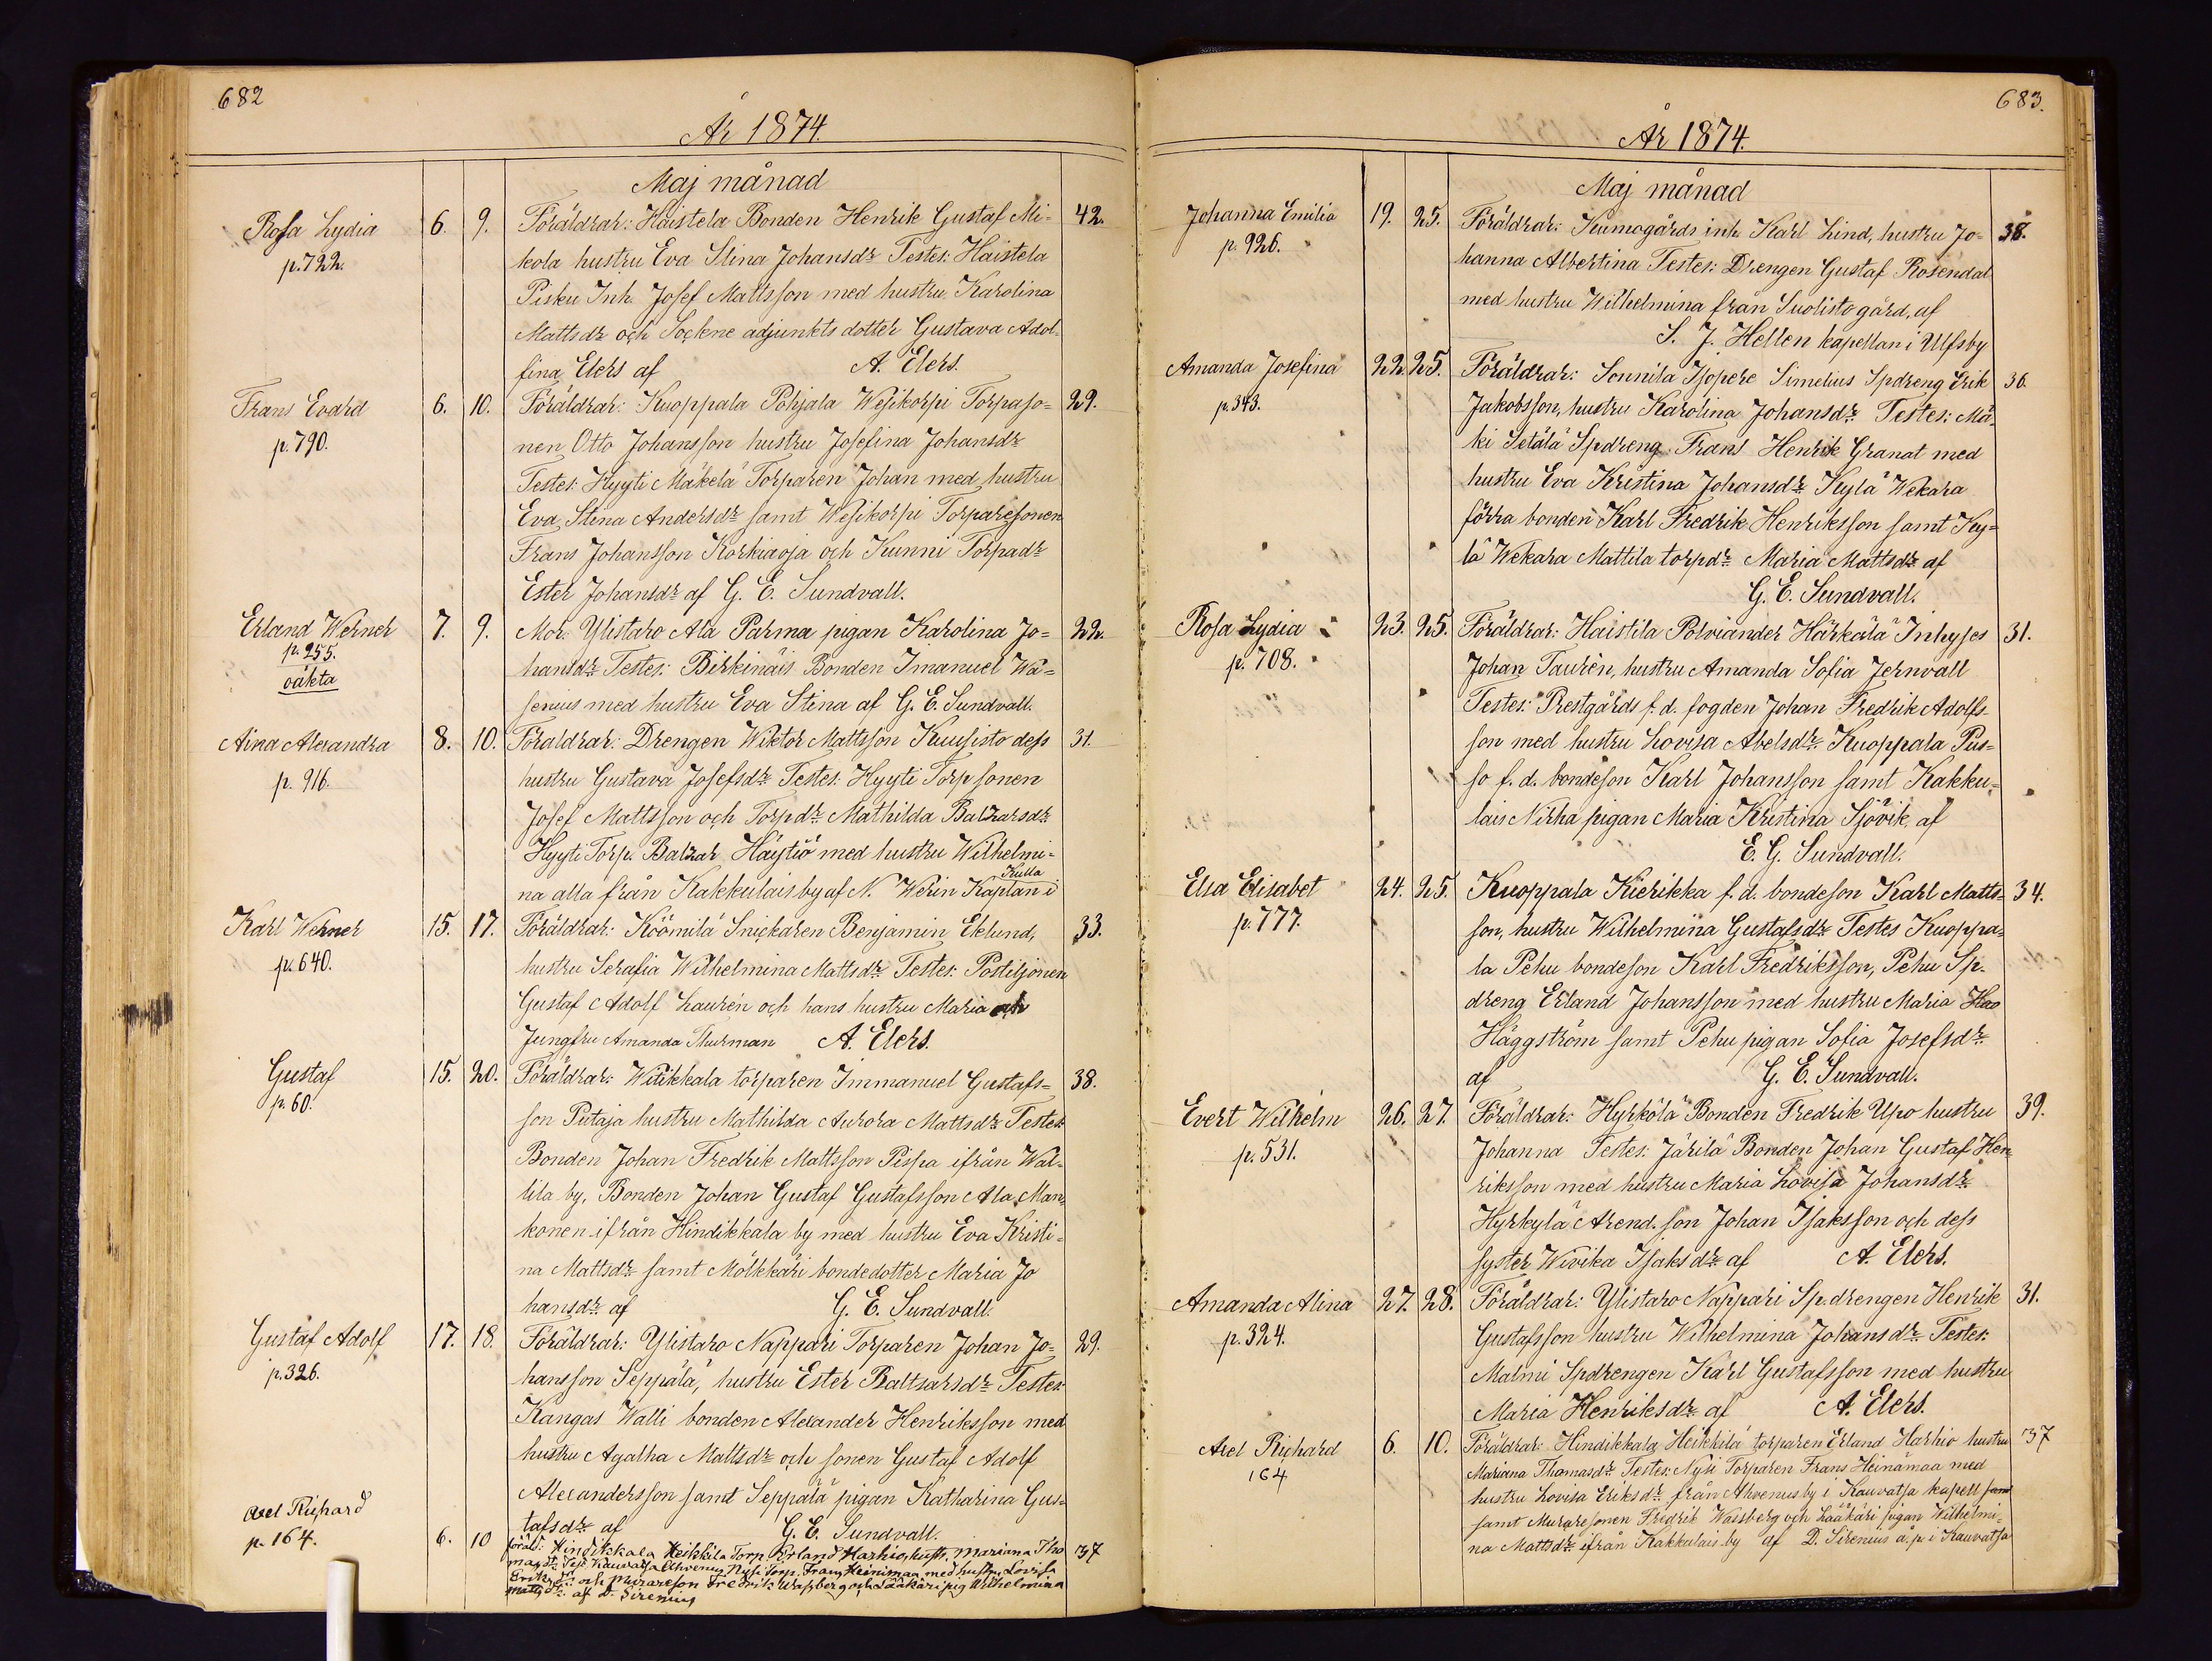 682
År 1874.
Maj månad
Rosa Lydia 6. 9. Föräldrar: Haistela Bonden Henrik Gustaf Mi- 42.
p. 722. kola hustru Eva Stina Johansdr Testes: Haistela
Pisku Inh. Josef Mattsson med hustru Karolina
Mattsdr och Sockne adjunkts dotter Gustava Adol-
fina Elers af A. Elers.
Frans Evard 6. 10. Föräldrar: Kuoppala Pohjala Wesikorpi Torpaso- 29.
p. 790. nen Otto Johansson hustru Josefina Johansdr
Testes: Hyyti Mäkelä Torparen Johan med hustru
Eva Stina Andersdr samt Wesikorpi Torparesonen
Frans Johansson Korkiaoja och Kunni Torpadr
Ester Johansdr af G. E. Sundvall.
Erland Werner 7. 9. Mor: Ylistaro Ala Parma pigan Karolina Jo- 22.
p. 255. hansdr Testes: Birkinäis Bonden Imanuel Wä-
oäkta senius med hustru Eva Stina af G. E. Sundvall.
Aina Alexandra 8. 10. Föräldrar: Drengen Wiktor Mattsson Kuusisto dess 31.
p. 916. hustru Gustava Josefsdr Testes: Hyyti Torpsonen
Josef Mattsson och Torpdr Mathilda Balzarsdr
Hyyti Torp. Balzar Häytiö med hustru Wilhelmi-
Kulla
na alla från Kakkulais by af N. Werin Kaplan i
Karl Werner 15. 17. Föräldrar: Köömilä Snickaren Benjamin Eklund, 33.
p. 640. hustru Serafia Wilhelmina Mattsdr Testes: Postiljonen
Gustaf Adolf Laurén och hans hustru Maria och
Jungfru Amanda Thurman A. Elers.
Gustaf 15. 20. Föräldrar: Witikkala torparen Immanuel Gustafs- 38.
p. 60. son Putaja hustru Mathilda Aurora Mattsdr Testes:
Bonden Johan Fredrik Mattsson Pispa ifrån Wal-
lila by, Bonden Johan Gustaf Gustafsson Ala Man-
konen ifrån Hindikkala by med hustru Eva Kristi-
na Mattsdr samt Mölkkäri bondedotter Maria Jo
hansdr af G. E. Sundvall.
Gustaf Adolf 17. 18. Föräldrar: Ylistaro Nappari Torparen Johan Jo- 29.
p. 326. hansson Seppälä, hustru Ester Baltsarsdr Testes:
Kangas Walli bonden Alexander Henriksson med
hustru Agatha Mattsdr och sonen Gustaf Adolf
Alexandersson samt Seppälä pigan Katharina Gus-
tafsdr af G. E. Sundvall.
Axel Richard
p. 164. 6. 10 föräld: Hindikkala Heikkilä Torp. Erland Harhio hustr. Mariana Tho 37
masdr Test: Kauvatsa Ahvenus Nysi Torp. Frans Heinimaa med hustru Lovisa
Eriksdr och Murareson Fredrik Wassberg och Lääkäri pig Wilhelmina
Mattsdr af D. Sirenius
683.
År 1874.
Maj månad
Johanna Emilia 19. 25. Föräldrar: Kumogårds inh. Karl Lind, hustru Jo- 38.
p. 926. hanna Albertina Testes: Drengen Gustaf Rosendal
med hustru Wilhelmina från Suolisto gård, af
S. J. Hellen kapellan i Ulfsby
Amanda Josefina 22. 25. Föräldrar: Sonnila Isopere Simelius Spdreng Erik 36.
p. 343. Jakobsson, hustru Karolina Johansdr Testes: Mä-
ki Setälä Spdreng Frans Henrik Granat med
hustru Eva Kristina Johansdr Kylä Wekara
förra bonden Karl Fredrik Henriksson samt Ky-
lä Wekara Mattila torpdr Maria Mattsdr af
G. E. Sundvall.
Rosa Lydia 23. 25. Föräldrar: Haistila Polviander Härkälä Inhyses 31.
p. 708. Johan Taurén, hustru Amanda Sofia Jernvall
Testes: Prestgårds f. d. fogden Johan Fredrik Adolfs-
son med hustru Lovisa Abelsdr Kuoppala Pus-
so f. d. bondeson Karl Johansson samt Kakku-
lais Nirha pigan Maria Kristina Sjövik, af
E. G. Sundvall.
Elsa Elisabet 24. 25. Kuoppala Kierikka f. d. bondeson Karl Matts- 34.
p. 777. son, hustru Wilhelmina Gustafsdr Testes Kuoppa-
la Pehu bondeson Karl Fredriksson, Pehu Sp.
dreng Erland Johansson med hustru Maria Hao
Häggström samt Pehu pigan Sofia Josefsdr
af G. E. Sundvall.
Evert Wilhelm 26. 27. Föräldrar: Hyrkölä Bonden Fredrik Upo hustru 39.
p. 531. Johanna Testes: Järilä Bonden Johan Gustaf Hen
riksson med hustru Maria Lovisa Johansdr
Hyrkylä Arend. son Johan Isaksson och dess
syster Wivika Isaksdr af A. Elers.
Amanda Alina 27. 28. Föräldrar: Ylistaro Nappari Sp. drengen Henrik 31.
p. 324. Gustafsson hustru Wilhelmina Johansdr Testes:
Malmi Spdrengen Karl Gustafsson med hustru
Maria Henriksdr af A. Elers.
Axel Richard 6. 10. Föräldrar: Hindikkala Heikkilä torparen Erland Harhio hustru 37
164 Mariana Thomasdr Testes: Nysi Torparen Frans Heinämaa med
hustru Lovisa Eriksdr från Ahvenus by i Kauvatsa kapell sam
samt Muraresonen Fredrik Wassberg och Lääkäri pigan Wilhelmi-
na Mattsdr ifrån Kakkulais by af D. Sirenius a. p. i Kauvatsa